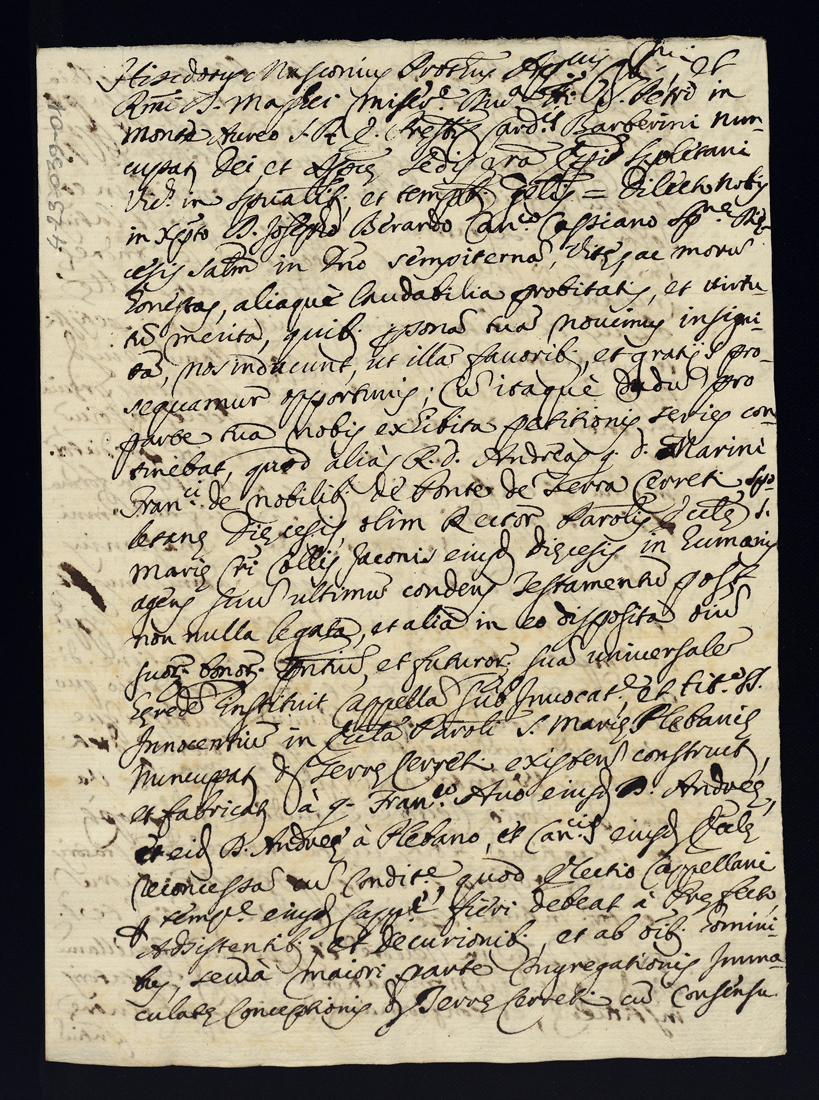 Hisedorus Nasconius Prothus Apcus Emi, et
Rmi D. Maphei miserne Diva Tti S. Petri in
Monte Aureo S. R. E. Presb. Card.lis Barberini nun-
cupat Dei et Aplicæ Sedis gra Epi Spoletani
Vic. in Spualib. et tempalib. Gnlis = Dilecto Nobis
in Xpto D. Joseph Berardo Can.co Cassiano Spnæ Diæ-
cesis salm in Dno sempiterna, Vitæ, ac moru
honestas, aliaquè laudabilia probitatis, et virtu-
tu merita, quib. psona tua novimus insigni-
ta, nos inducunt, ut illa favorib. et gratijs pro-
sequamur opportunis; Cu itaquè dudu pro
parte tua nobis exhibita petitionis series con-
tinebat, quod aliàs R. D. Andreas q. d. Marini
Fran.ci de nobilib. de Ponte de Terra Cerreti Spo-
letanæ Diæcesis, olim Rector Parolis Eccle S.
Mariæ Collis Jaconis eiusd Diæcesis in humanis
agens suu ultimu condens Testamentu post
non nulla legata, et alia in eo disposita oiu
suor. bonor. pntiu, et futuror. sua universale
heredè instituit Cappella sub Invocat.e et tit.o SS.
Innocentiu in Eccla Paroli S. Mariæ Plebaniæ
nuncupat d Terræ Cerreti existen construct,
et fabricat à q. Fran.co Avo eiusd D. Andreæ,
et eid D. Andreæ à Plebano, et Can.cis eiusd Eccle
reconcessa cu Condit.e, quod Electio Cappellani
p temp.e eiusd Capp.e fieri debeat à Præfecto
Adsistentib. et Decurionib, et ab oib. homini-
bus, seu à maiori parte Congregationis Imma-
culatæ Conceptionis d Terræ Cerreti cu Consensu
475030-01